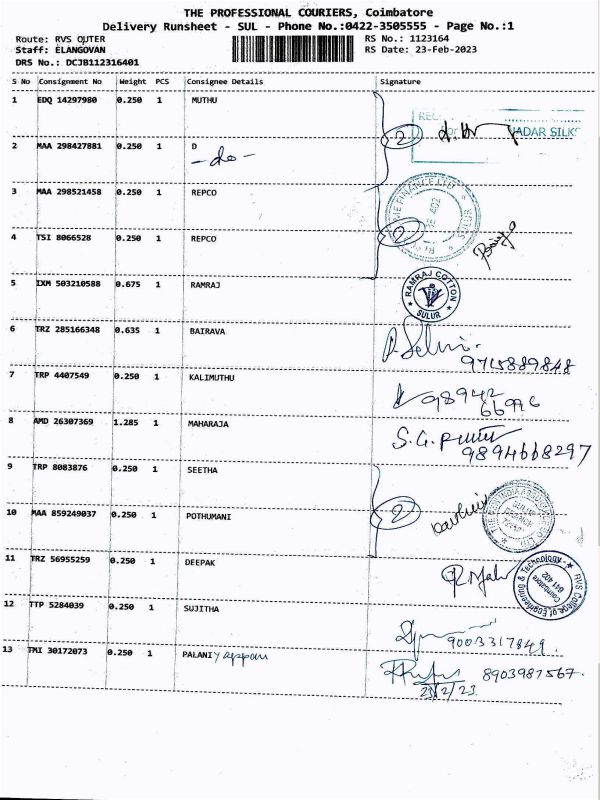 THE PROFESSIONAL COURIERS, Coimbatore
Delivery Runsheet - SUL - Phone No.:0422-3505555 - Page No.:1
Route: RVS OUTER
RS No.: 1123164
Staff: ELANGOVAN
RS Date: 23-Feb-2023
DRS No.: DCJB112316401
S No Consignment No Weight PCS Consignee Details Signature
1 EDQ 14297980 0.250 1 MUTHU
2 NADAR SILKS
2 MAA 298427881 0.250 1 D
-do-
3 MAA 298521458 0.250 1 REPCO
2
4 TSI 8066528 0.250 1 REPCO
SULUR
5 IXM 503210588 0.675 1 RAMRAJ
RAMRAJ COTTON
SULUR
6 TRZ 285166348 0.635 1 BAIRAVA
9715889848
7 TRP 4407549 0.250 1 KALIMUTHU
98942
66996
8 AMD 26307369 1.285 1 MAHARAJA
9894668297
9 TRP 8083876 0.250 1 SEETHA
10 MAA 859249037 0.250 1 POTHUMANI
2
11 TRZ 56955259 0.250 1 DEEPAK
RVS College of Engineering & Technology
Coimbatore
641 402
12 TTP 5284039 0.250 1 SUJITHA
9003317849.
13 TMI 30172073 0.250 1 PALANIyappan
8903987567.
23/2/23